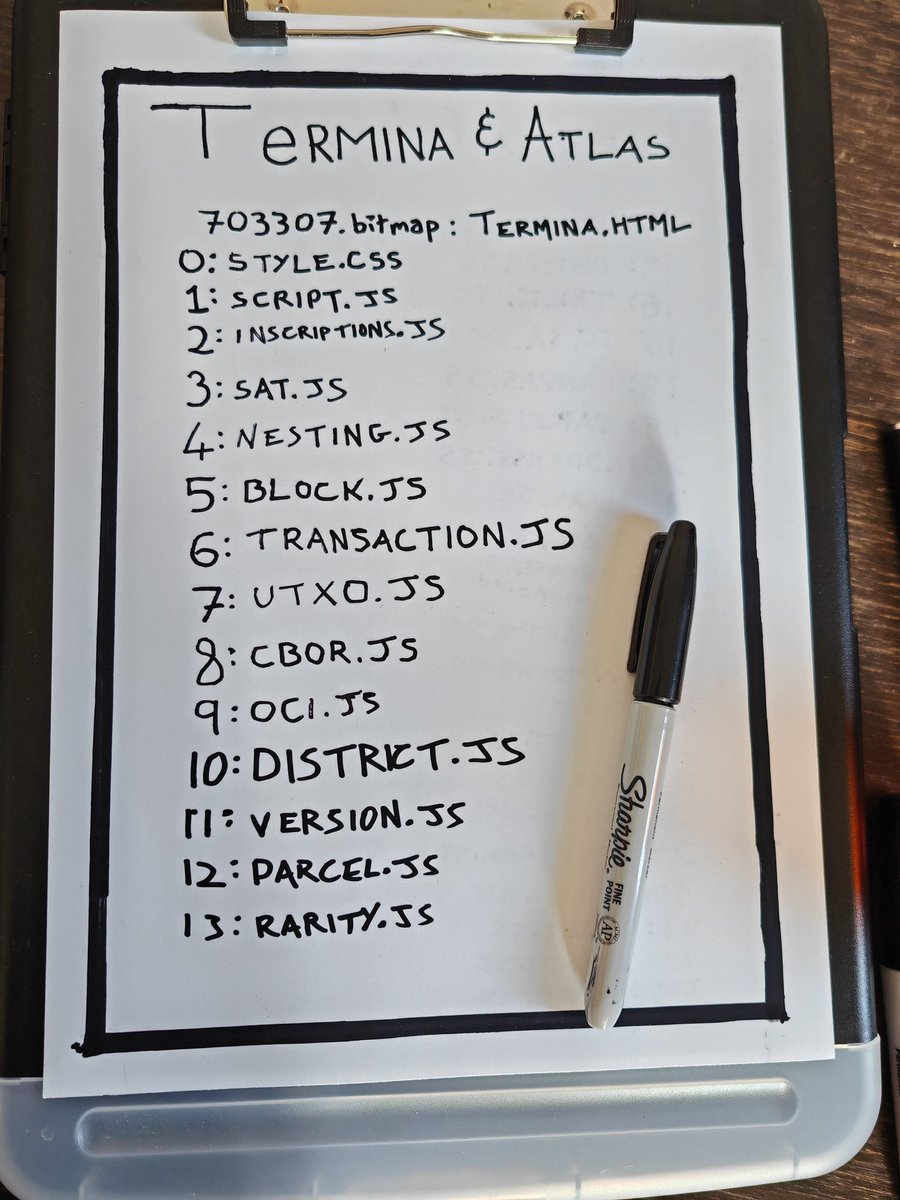 TERMINA & ATLAS
703307.bitmap: TERMINA.HTML
0: STYLE.CSS
1: SCRIPT.JS
2: INSCRIPTIONS.JS
3: SAT.JS
4: NESTING.JS
5: BLOCK.JS
6: TRANSACTION.JS
7: UTXO.JS
8: CBOR.JS
9: OCI.JS
10: DISTRICT.JS
11: VERSION.JS
12: PARCEL.JS
13: RARITY.JS
Sharpie
FINE
POINT
AP